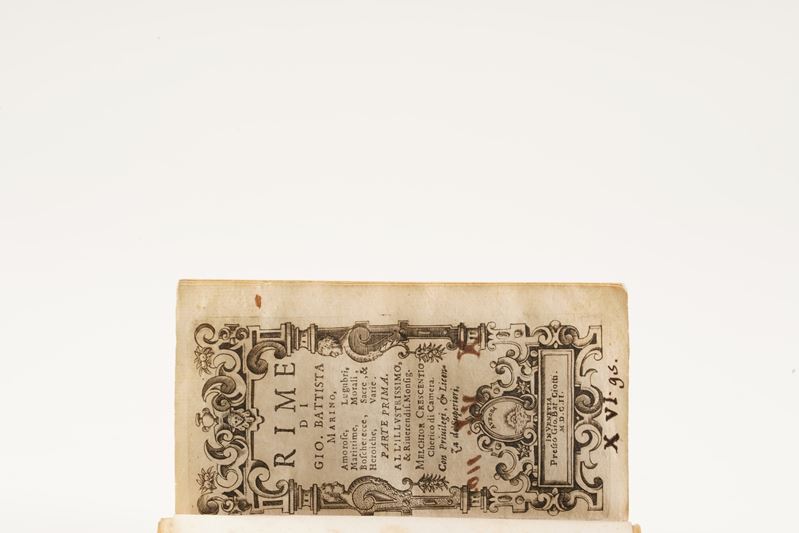 RIME
DI
GIO. BATTISTA
MARINO,
Amoroſe, Lugubri,
Marittime, Morali,
Boſcherecce, Sacre, &
Heroiche, Varie.
PARTE PRIMA.
AL L'ILLVSTRISSIMO,
& Riuerendiſ. Monſig.
MELCHIOR CRESCENTIO
Cherico di Camera.
Con Priuilegi, & Licen-
za de' Superiori,
IN VENETIA,
Preſſo Gio. Bat. Ciotti.
M. D. CII.
X VI. 95.